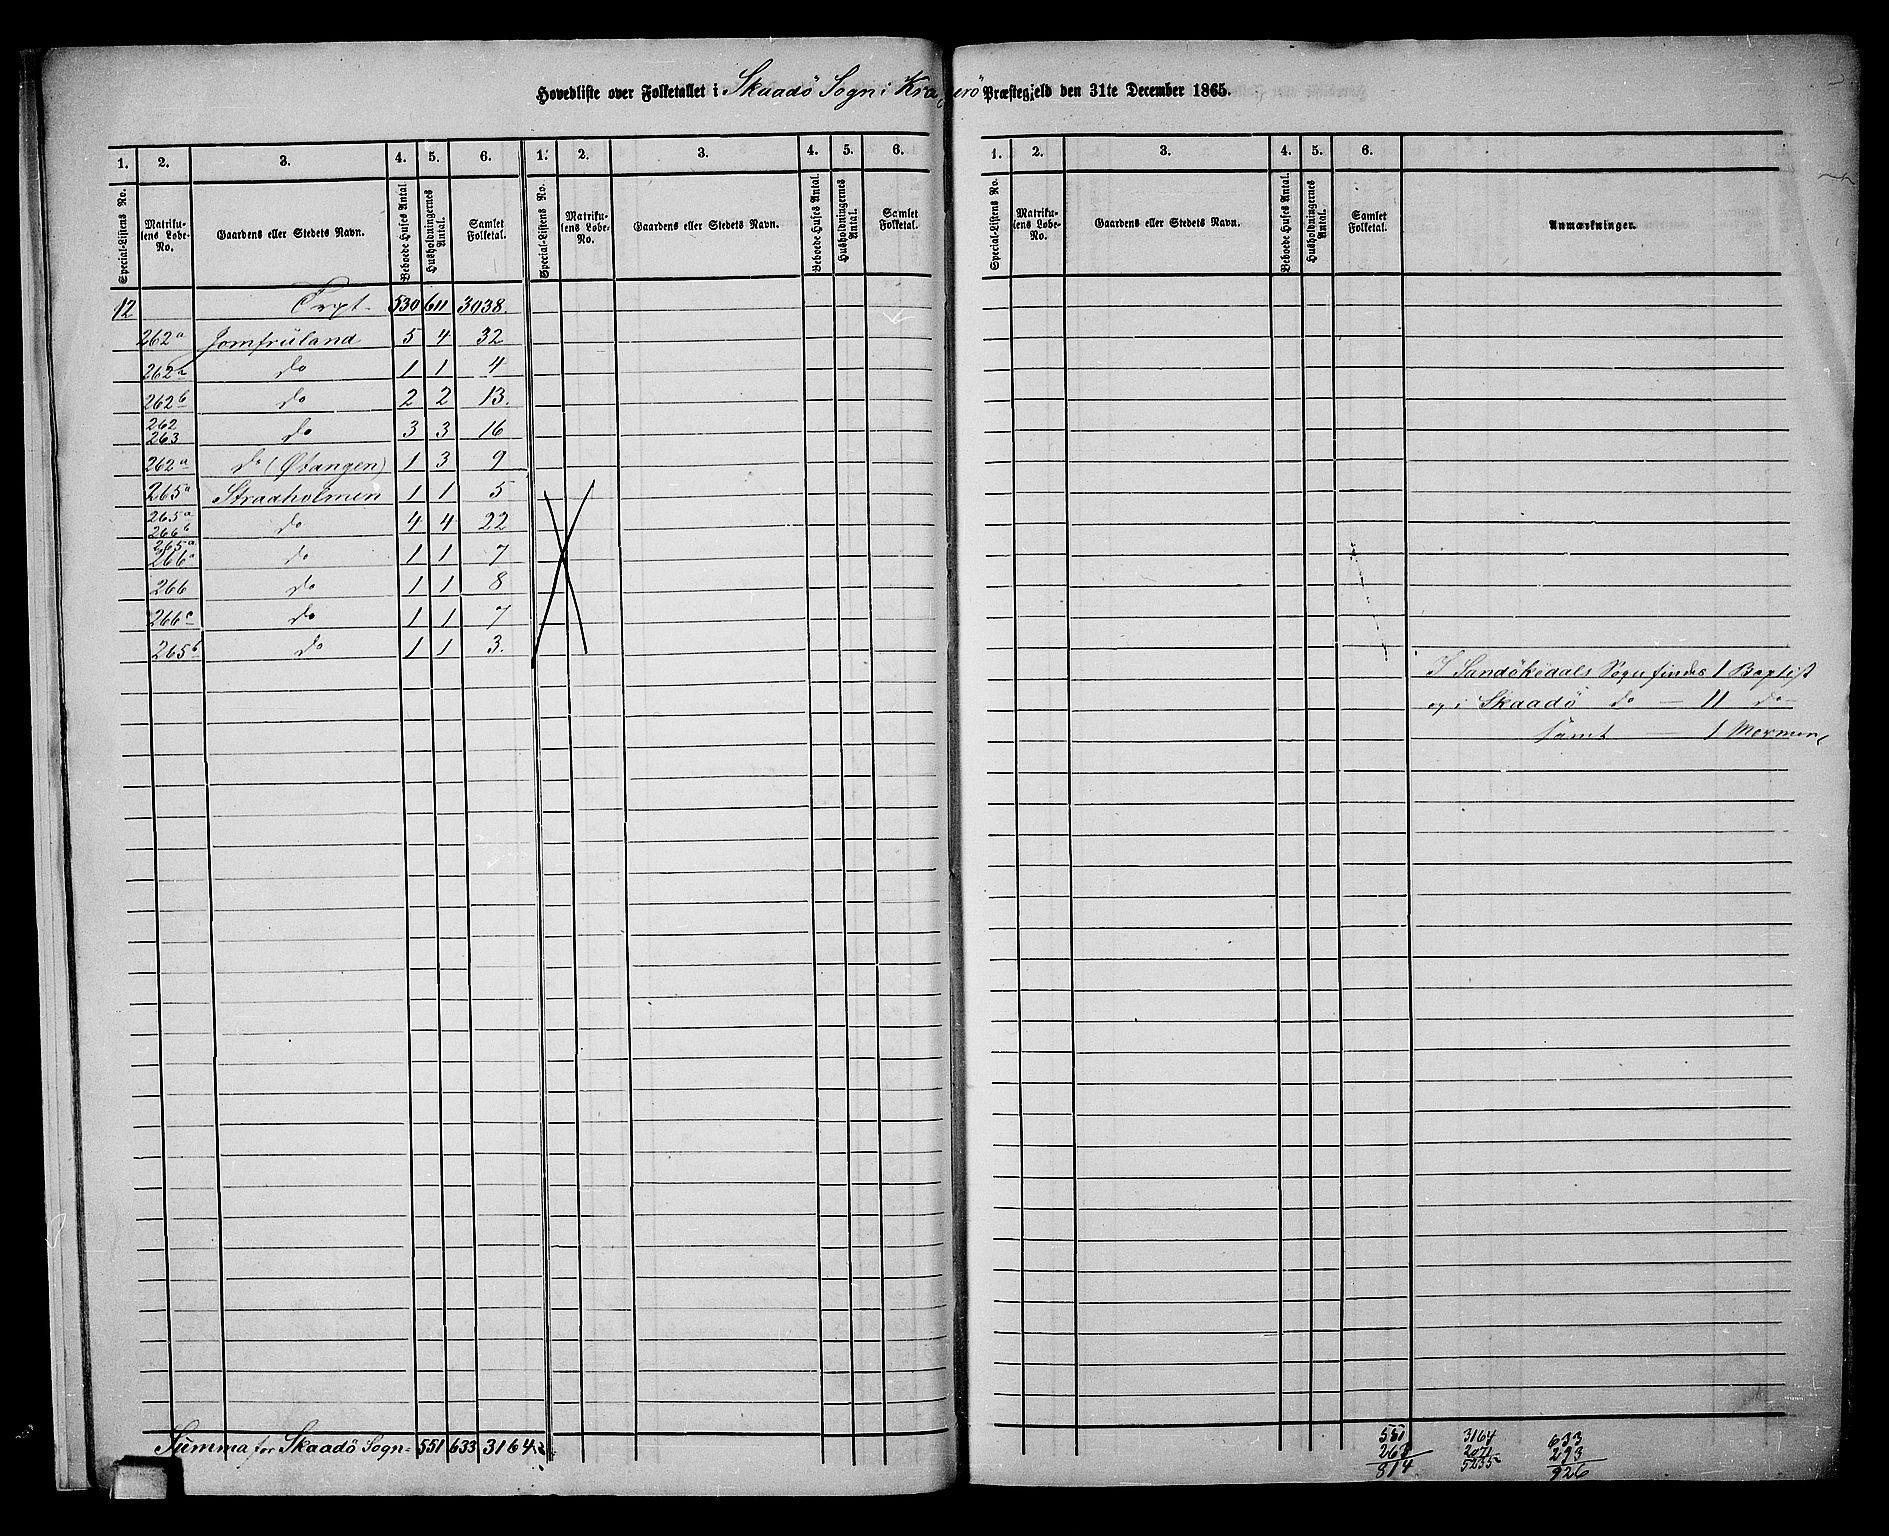 Hovedliste over Folketallet i Skaadö Sogn i Kragerö Præstegjeld den 31te December 1865.
1. 2. 3. 4. 5. 6. 1. 2. 3. 4. 5. 6.
Special-Listens No. Matrikulens Løbe-No. Gaardens eller Stedets Navn. Beboede Huses Antal. Husholdningernes Antal. Samlet Folketal. Special-Listens No. Matrikulens Løbe-No. Gaardens eller Stedets Navn. Beboede Huses Antal. Husholdningernes Antal. Samlet Folketal.
12 Trpt. 530 611 3038.
262a Jomfruland 5 4 32
262a do 1 1 4
262b do 2 2 13.
262 263 do 3 3 16
262a do (Øtangen) 1 3 9
265a Straaholmen 1 1 5
265a 266b do 4 4 22
265a 266a do 1 1 7
266 do 1 1 8
266c do 1 1 7
265b do 1 1 3.
Summa for Skaadö Sogn = 551 633 3164
1. 2. 3. 4. 5. 6.
Special-Listens No. Matrikulens Løbe-No. Gaardens eller Stedets Navn. Beboede Huses Antal. Husholdningernes Antal. Samlet Folketal. Anmærkninger.
I Sandökedals Sogn findes 1 Baptist
og i Skaadö do — 11 do
samt — 1 Mormon
551 3164 633
263 2071 293
814 5235 926